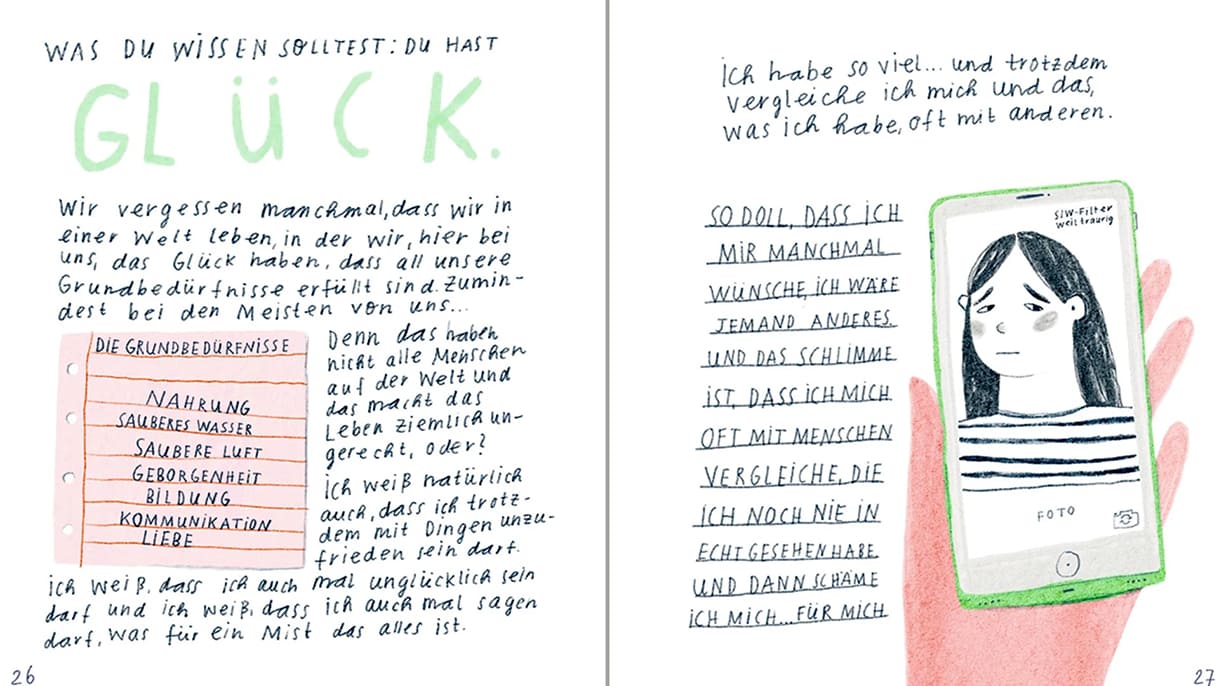 WAS DU WISSEN SOLLTEST: DU HAST
GLÜCK.
Wir vergessen manchmal, dass wir in
einer Welt leben, in der wir, hier bei
uns, das Glück haben, dass all unsere
Grundbedürfnisse erfüllt sind. Zumin-
dest bei den Meisten von uns...
DIE GRUNDBEDÜRFNISSE
NAHRUNG
SAUBERES WASSER
SAUBERE LUFT
GEBORGENHEIT
BILDUNG
KOMMUNIKATION
LIEBE
Denn das haben
nicht alle Menschen
auf der Welt und
das macht das
Leben ziemlich un-
gerecht, oder?
Ich weiß natürlich
auch, dass ich trotz-
dem mit Dingen unzu-
frieden sein darf.
Ich weiß, dass ich auch mal unglücklich sein
darf und ich weiß, dass ich auch mal sagen
darf, was für ein Mist das alles ist.
26
Ich habe so viel... und trotzdem
vergleiche ich mich und das,
was ich habe, oft mit anderen.
SO DOLL, DASS ICH
MIR MANCHMAL
WÜNSCHE, ICH WÄRE
JEMAND ANDERES.
UND DAS SCHLIMME
IST, DASS ICH MICH
OFT MIT MENSCHEN
VERGLEICHE, DIE
ICH NOCH NIE IN
ECHT GESEHEN HABE.
UND DANN SCHÄME
ICH MICH... FÜR MICH
S/W-Filter
weil traurig
FOTO
27